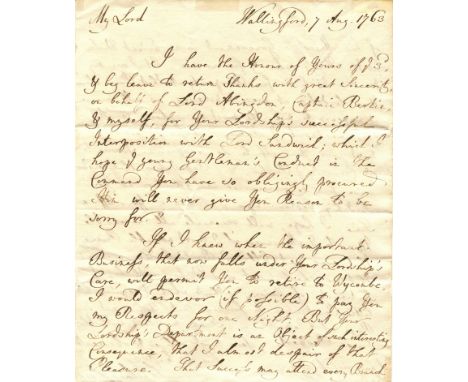 My Lord Wallingford, 7 Aug. 1763
I have the Honour of Yours of ye 3d
& beg leave to return Thanks with great Sincerity
on behalf of Lord Abingdon, Captn: Bertie
& myself, for Your Lordship's successful
Interposition with Lord Sandwich; which I
hope ye young Gentleman's Conduct in the
Command You have so obligingly procured
Him will never give You Reason to be
sorry for.
If I knew when the important
Business that now falls under Your Lordship's
Care, will permit You to retire to Wycombe,
I would endeavor (if possible) to pay You
my Respects for one Night. But Your
Lordship's Department is an Object of such interesting
Consequence, that I almost despair of that
Pleasure. That Success may attend every Branch